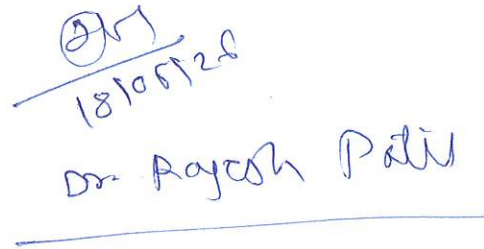 18/05/26
Dr. Rajesh Patil